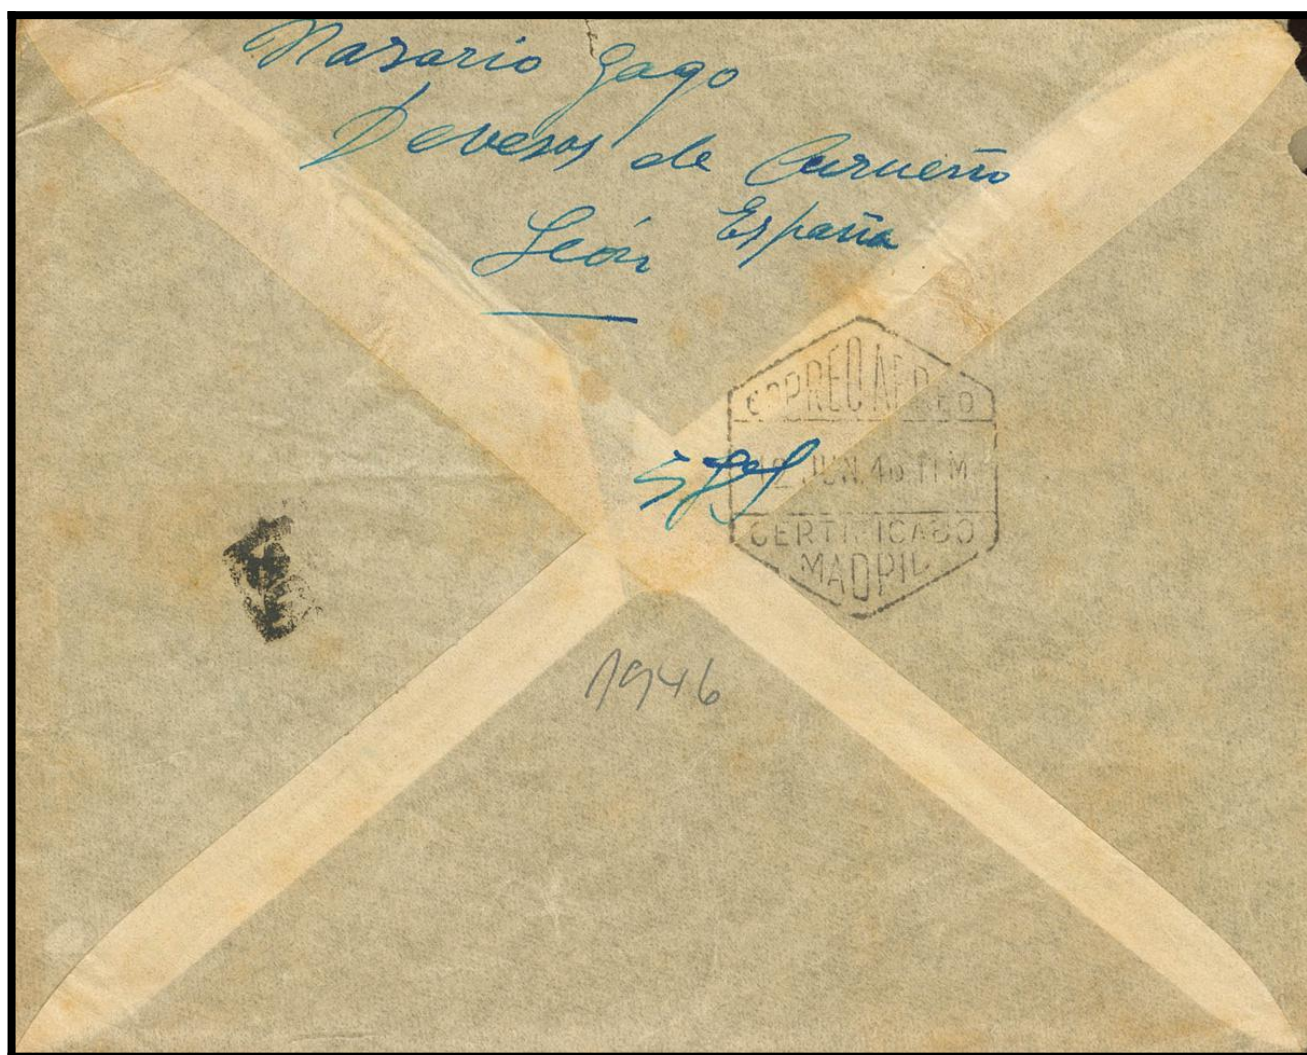 Nazario Gago
Devesas de Curueño
León España
CORREO AEREO
12 JUN. 46 11 M
CERTIFICADO
MADRID
1946